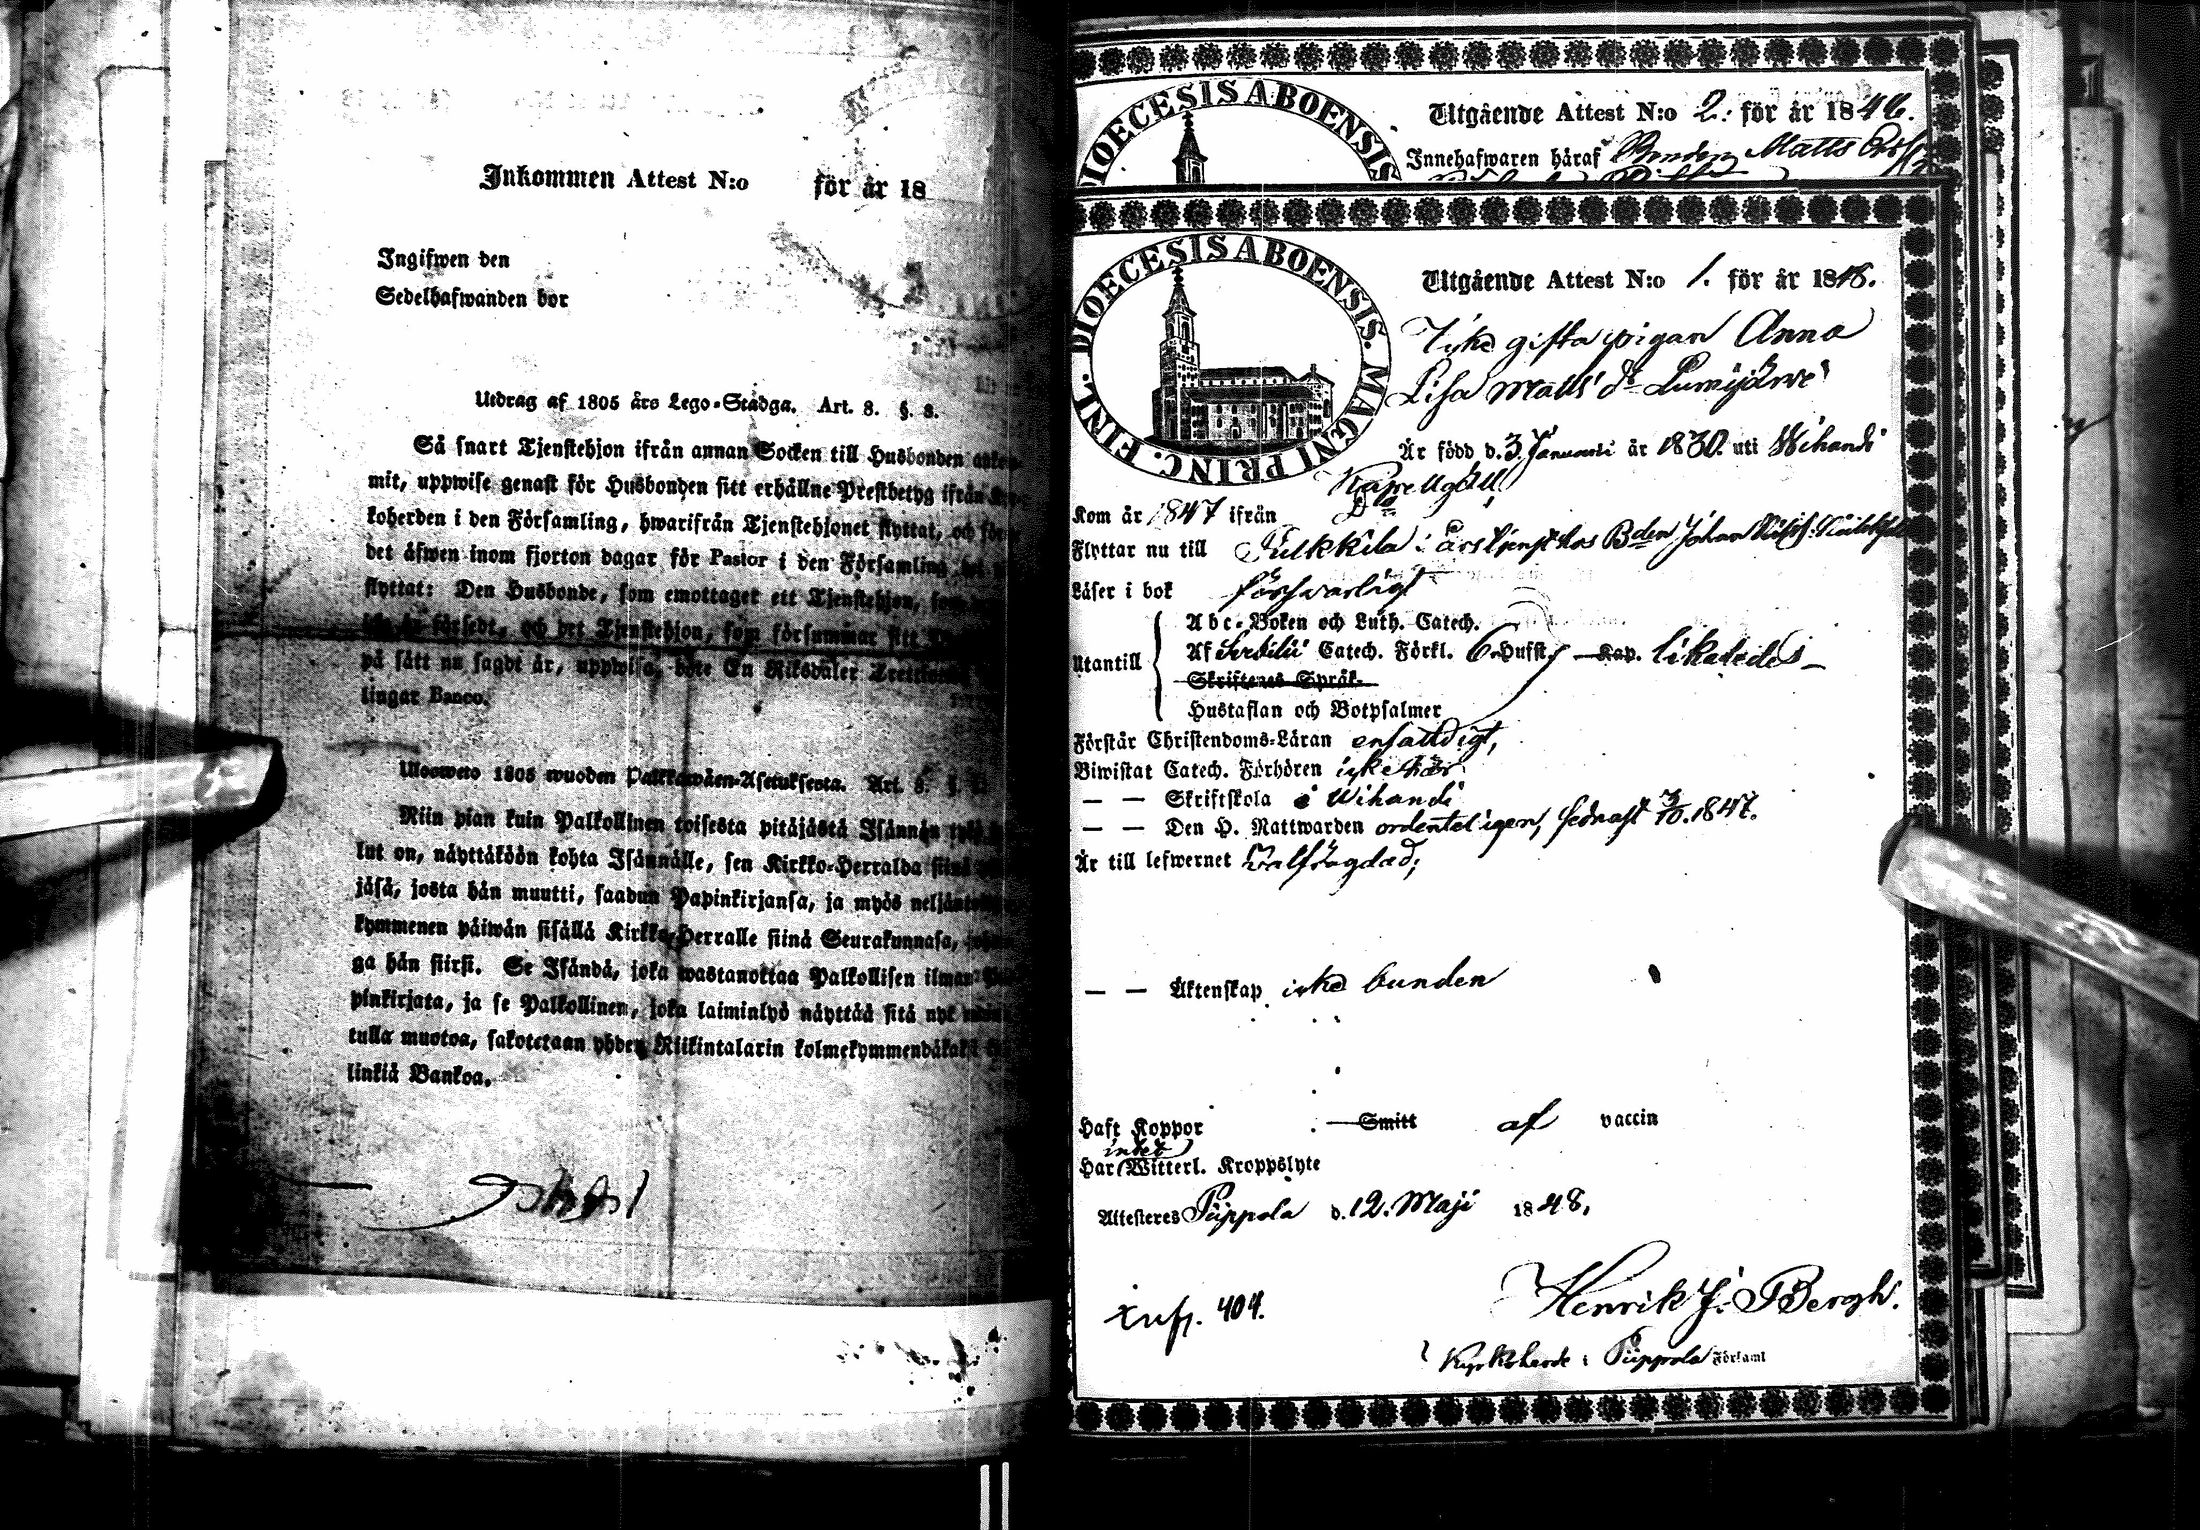 Inkommen Attest N:o för år 18
Ingifwen den
Sedelhafwanden bor
Utdrag af 1805 års Lego-Stadga. Art. 8. §. 8.
Så snart Tjenstehjon ifrån annan Socken till Husbonden
mit, uppwise genast för Husbonden sitt erhållne Prestbetyg ifrån
koherden i den Församling, hwarifrån Tjenstehjonet flyttat, och
det äfwen inom fjorton dagar för Pastor i den Församling
flyttat: Den Husbonde, som emottager ett Tjenstehjon, som
försedt, och det Tjenstehjon, som försummar sitt
på sätt nu sagdt är, uppwisa, böte En Riksdaler
lingar Banco.
Ulosweto 1805 wuoden Palkkawäen-Asetuksesta. Art. 8. §.
Niin pian kuin Palkollinen toisesta pitäjästä Isännän
lut on, näyttäköön kohta Isännälle, sen Kirkko-Herralda siinä
jäsä, josta hän muutti, saadun Papinkirjansa, ja myös
kymmenen päiwän sisällä Kirkko-Herralle siinä Seurakunnasa,
ga hän siirsi. Se Isändä, joka wastanottaa Palkollisen ilman
pinkirjata, ja se Palkollinen, joka laiminlyö näyttää sitä nyt
tulla muotoa, sakotetaan yhden Riikintalarin kolmekymmendäkaksi
linkiä Bankoa.
DIOECESIS ABOENSIS
Utgående Attest N:o 2. för år 1848.
Innehafwaren häraf Bonden Matts
DIOECESIS ABOENSIS. MAGNI PRINC. FINL.
Utgående Attest N:o 1. för år 1848.
Icke gifta pigan Anna
Lisa Matts dr Lumijärwi
Är född d. 3 Januarii år 1830. uti Wihandi
Kapellgäll
Kom år 1847 ifrån Do
Flyttar nu till Pulkkila i årstjenst hos Bden Johan
Läser i bok försvarligt
Abc-Boken och Luth. Catech.
Utantill Af Svebilii Catech. Förkl. 6 Hufst. Kap. likaledes
Skriftenes Språk.
Hustaflan och Botpsalmer
Förstår Christendoms-Läran enfaldigt,
Biwistat Catech. Förhören icke här
— — Skriftskola i Wihandi
— — Den H. Nattwarden ordenteligen, sednast 3/10. 1847.
Är till lefwernet wälfrägdad;
— — Äktenskap icke bunden
Haft Koppor Smitt af vaccin
intet
Har Witterl. Kroppslyte
Attesteres Piippola d. 12. Maji 1848.
Henrik J. Bergh.
404.
Kyrkoherde i Piippola Församl